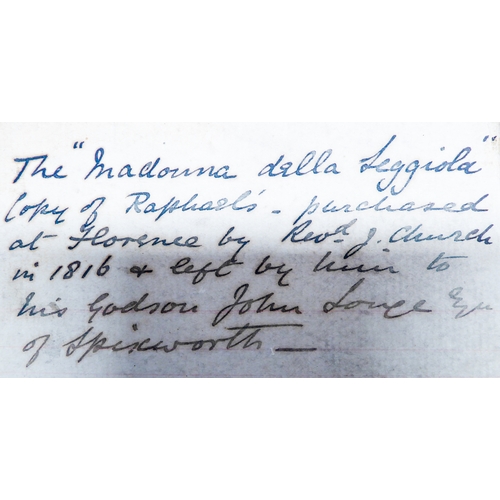 The "Madonna della Seggiola"
Copy of Raphael's - purchased
at Florence by Revd. J. Church
in 1816 & left by him to
his Godson John Longe Esqr
of Spixworth —